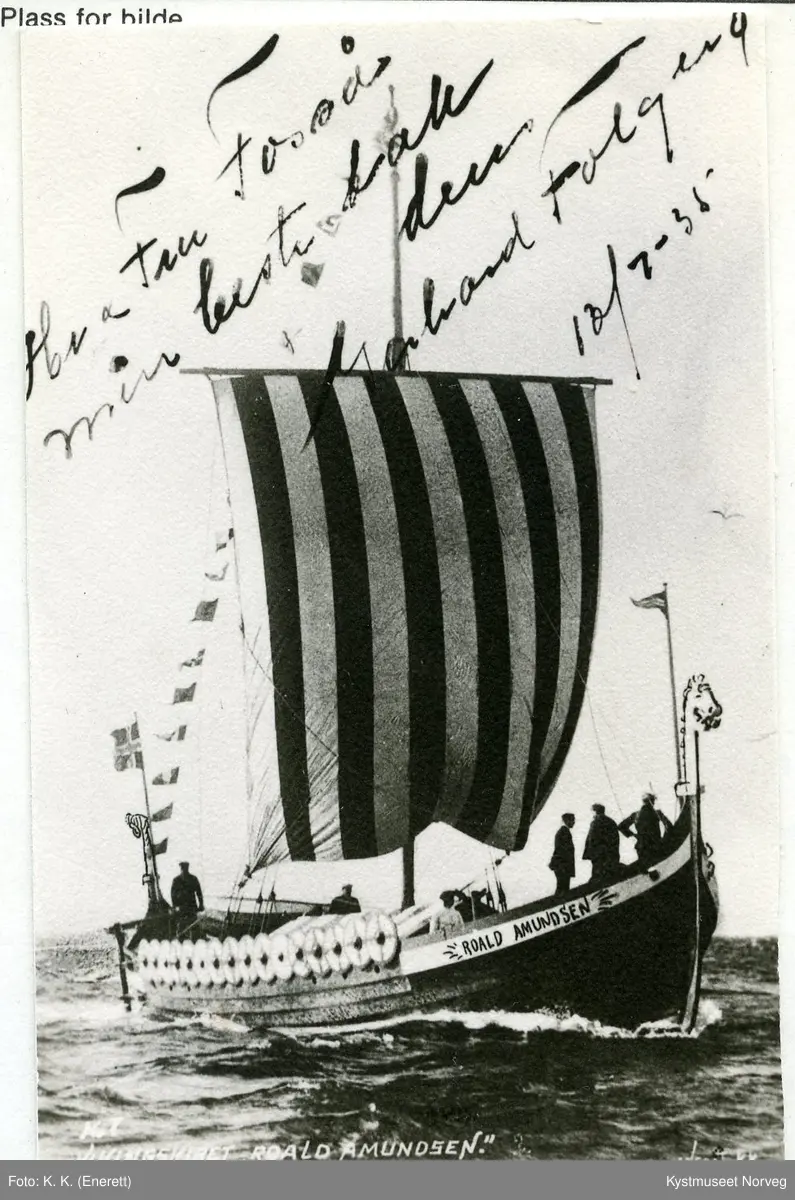 Plass for bilde
Fru Fosså
min beste takk
Gerhard Folgerø
ROALD AMUNDSEN
K.K
VIKINGSKIBET "ROALD AMUNDSEN."
Foto: K. K. (Enerett)
Kystmuseet Norveg